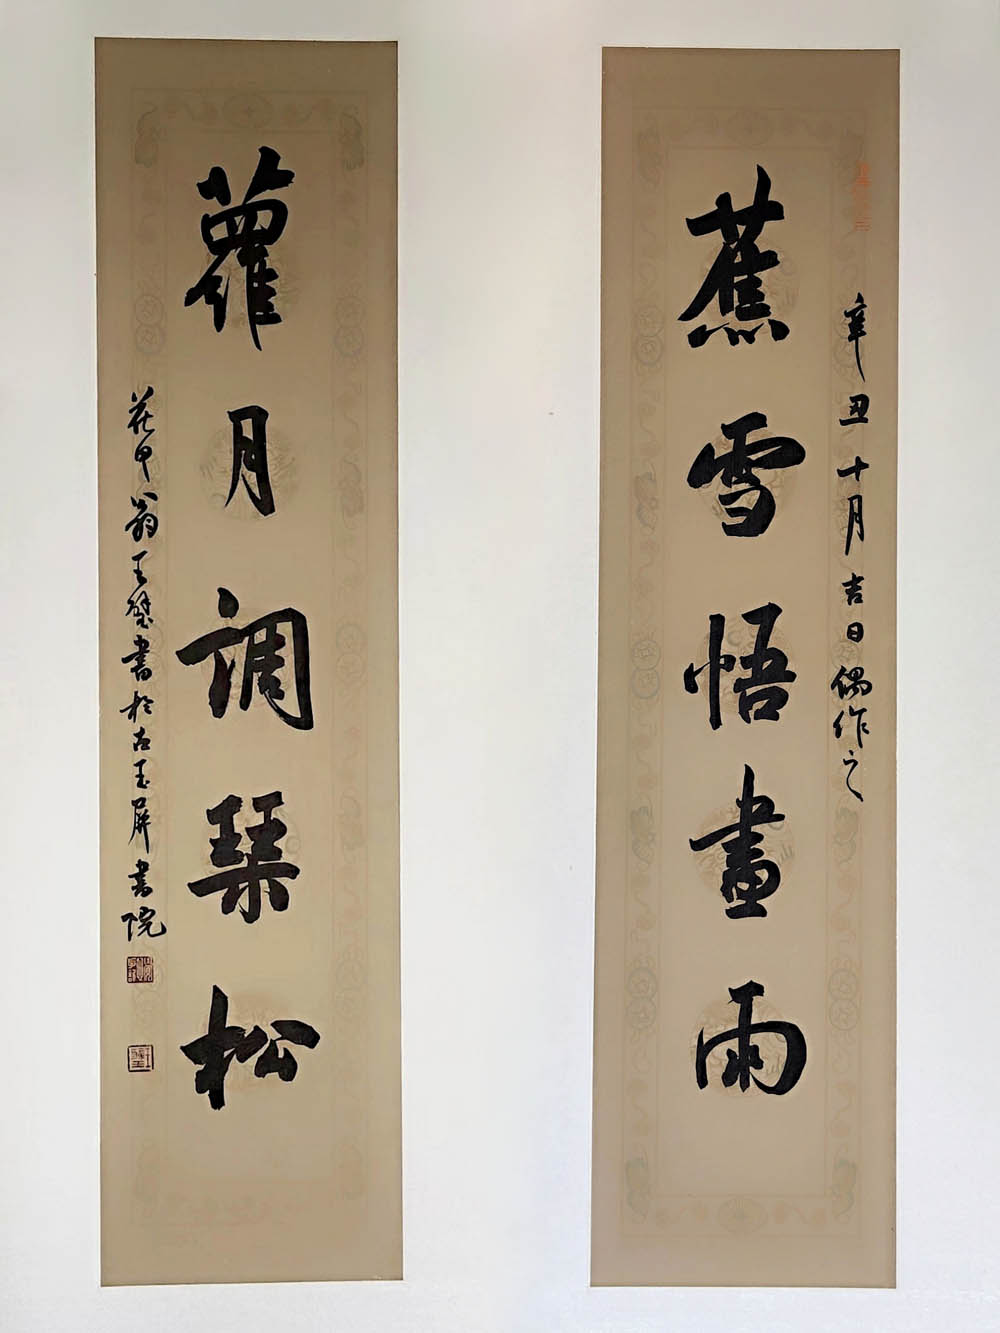 蕉雪悟畫雨
辛丑十月吉日偶作之
蘿月調琹松
花甲翁王璧書於古玉屏書院